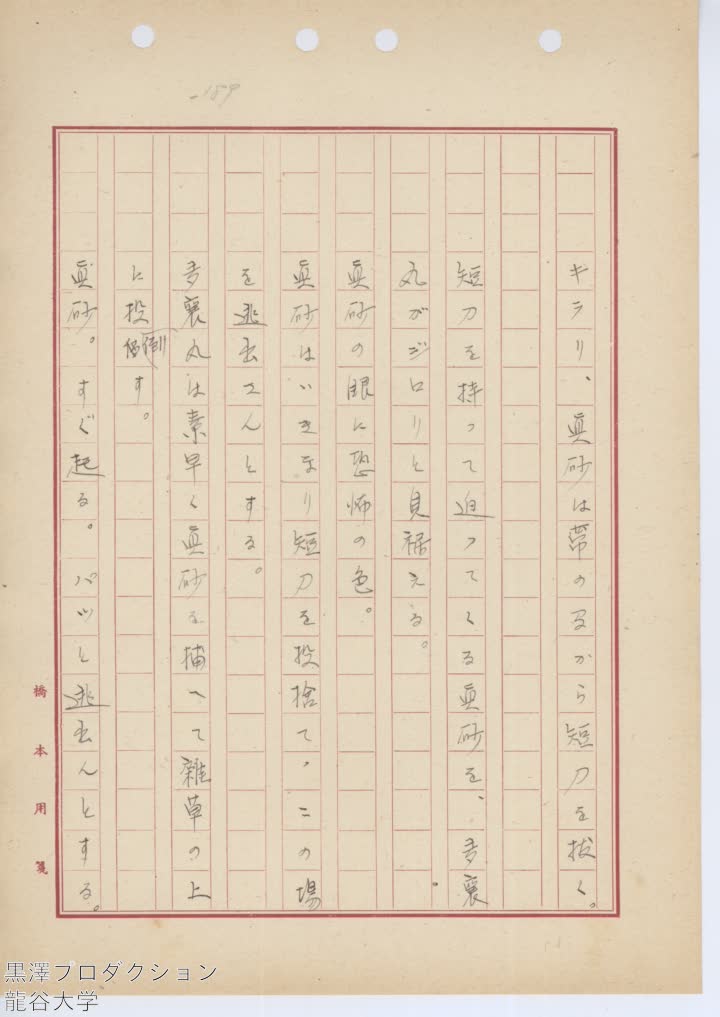 -189
キラリ、眞砂は帯の間から短刀を抜く。
短刀を持って迫ってくる眞砂を、多襄
丸がジロリと見据える。
眞砂の眼に恐怖の色。
眞砂はいきなり短刀を投捨て、この場
を逃出さんとする。
多襄丸は素早く眞砂を捕へて雑草の上
に投倒す。
眞砂。すぐ起る。パッと逃出んとする。
橋本用箋
黒澤プロダクション
龍谷大学